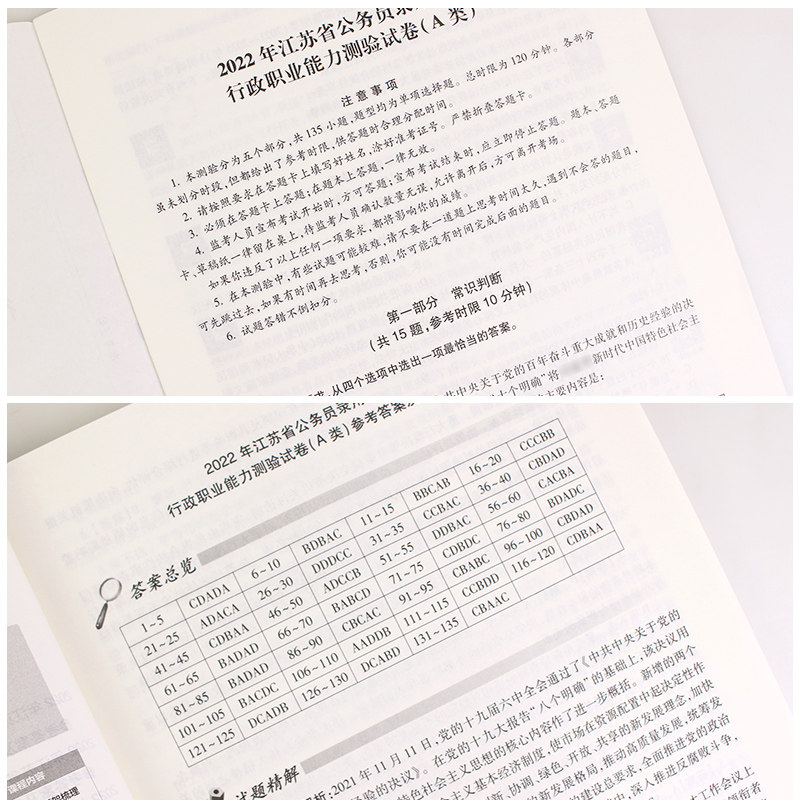 2022 年江苏省公务员录
行政职业能力测验试卷(A 类)
注意事项
1. 本测验分为五个部分,共 135 小题,题型均为单项选择题。总时限为 120 分钟。各部分
虽未划分时段,但都给出了参考时限,供答题时合理分配时间。
2. 请按照要求在答题卡上填写好姓名,涂好准考证号。严禁折叠答题卡。
3. 必须在答题卡上答题;在题本上答题,一律无效。
4. 监考人员宣布考试开始时,方可答题;宣布考试结束时,应立即停止答题。题本、答题
卡、草稿纸一律留在桌上,待监考人员确认数量无误,允许离开后,方可离开考场。
如果你违反了以上任何一项要求,都将影响你的成绩。
5. 在本测验中,有些试题可能较难,请不要在一道题上思考时间太久,遇到不会答的题目,
可先跳过去,如果有时间再去思考,否则,你可能没有时间完成后面的题目。
6. 试题答错不倒扣分。
第一部分 常识判断
(共 15 题,参考时限 10 分钟)
从四个选项中选出一项最恰当的答案。
中共中央关于党的百年奋斗重大成就和历史经验的决
个明确”将 新时代中国特色社会主
主要内容是:
2022 年江苏省公务员录用
行政职业能力测验试卷(A 类)参考答案
答案总览
1~5 CDADA 6~10 BDBAC 11~15 BBCAB 16~20 CCCBB
21~25 ADACA 26~30 DDDCC 31~35 CCBAC 36~40 CBDAD
41~45 CDBAA 46~50 ADCCB 51~55 DDBAC 56~60 CACBA
61~65 BADAD 66~70 BABCD 71~75 CDBDC 76~80 BDADC
81~85 BADAD 86~90 CBCAC 91~95 CBABC 96~100 CBDAD
101~105 BACDC 106~110 AADDB 111~115 CCBDD 116~120 CDBAA
121~125 DCADB 126~130 DCABD 131~135 CBAAC
试题精解
析:2021 年 11 月 11 日,党的十九届六中全会通过了《中共中央关于党的
经验的决议》。在党的十九大报告“八个明确”的基础上,该决议用
特色社会主义思想的核心内容作了进一步概括。新增的两个
会主义基本经济制度,使市场在资源配置中起决定性作
创新、协调、绿色、开放、共享的新发展理念,加快
的新发展格局,推动高质量发展,统筹发
建设总要求,全面推进党的政治
中,深入推进反腐败斗争,
工作会议上
课程内容